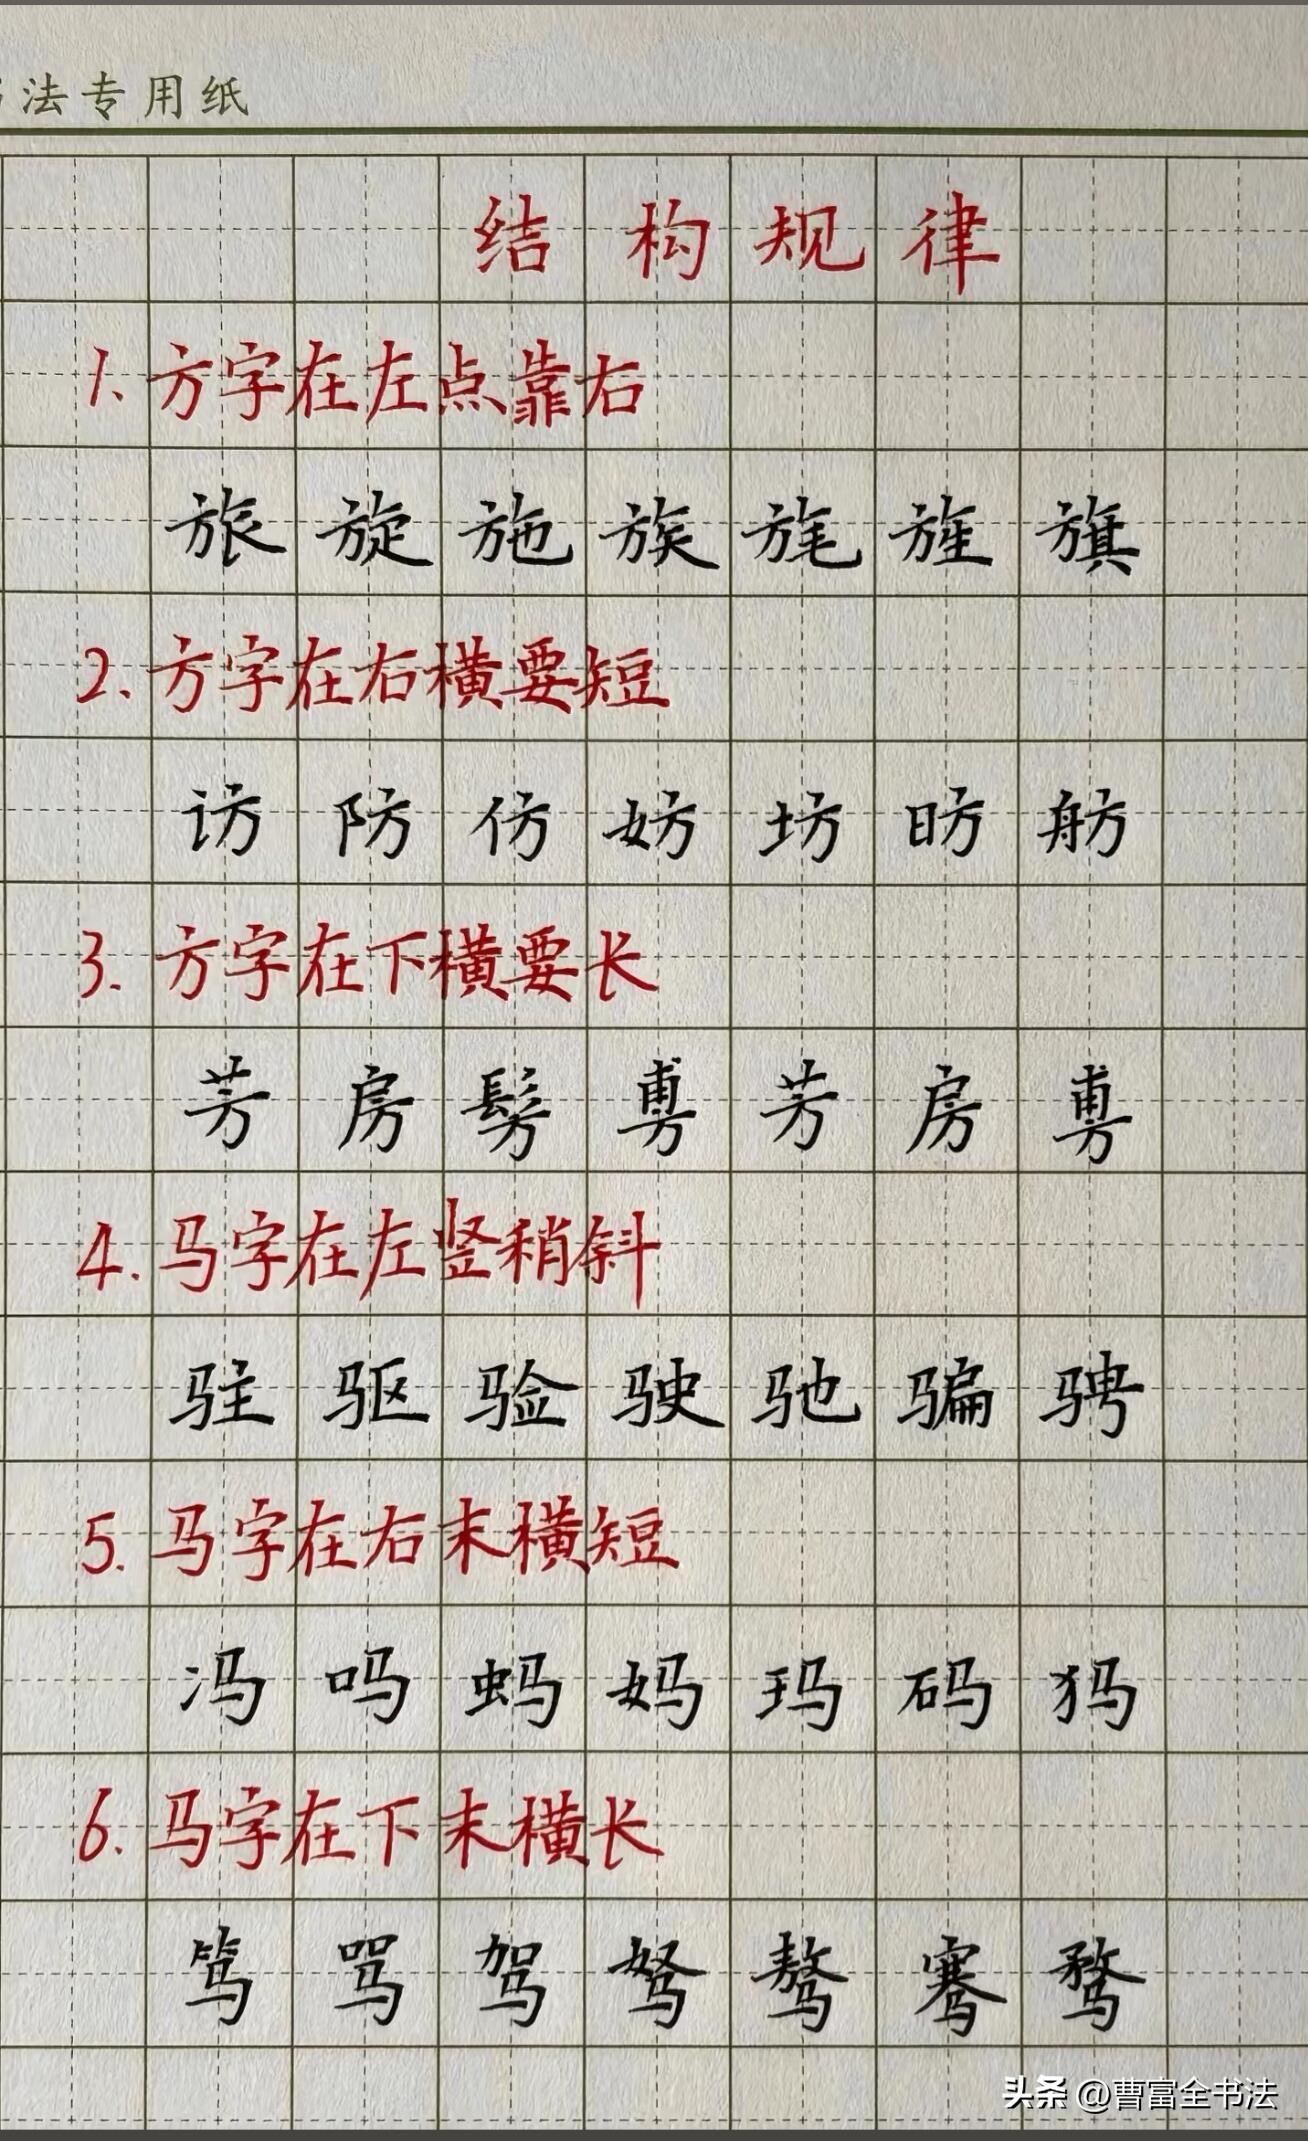 法专用纸
结构规律
1.方字在左点靠右
旅旋施族旄旌旗
2.方字在右横要短
访防仿妨坊昉舫
3.方字在下横要长
芳房髣旉芳房旉
4.马字在左竖稍斜
驻驱验驶驰骗骋
5.马字在右末横短
冯吗蚂妈玛码犸
6.马字在下末横长
笃骂驾驽骜骞骛
头条 @曹富全书法